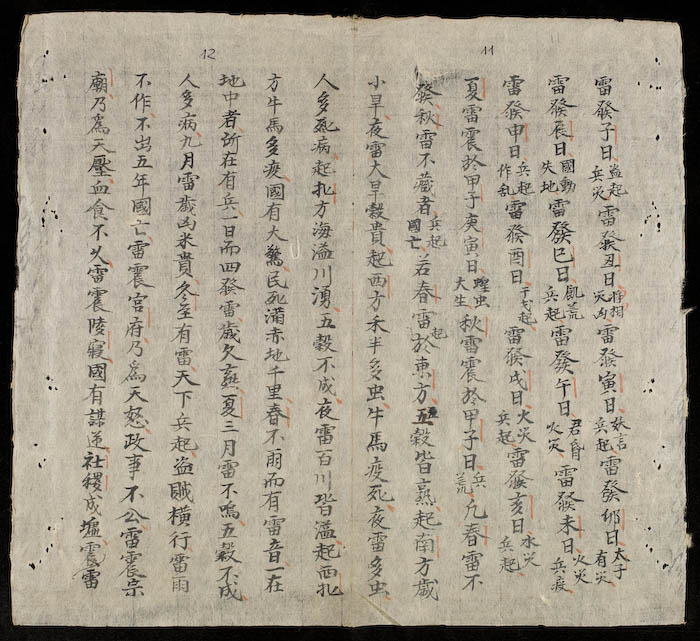 11
雷發子日盜起兵災雷發丑日將相災凶雷發寅日妖言兵起雷發卯日太子有災
雷發辰日國動失地雷發巳日飢荒兵起雷發午日君火災雷發未日火災兵疫
雷發申日兵起作乱雷發酉日干戈起雷發戌日火災兵起雷發亥日水災兵起
夏雷震於甲子庚寅日蝗虫大生秋雷震於甲子日兵荒凡春雷不
發秋雷不藏者兵起國亡若春雷起於東方五穀皆熟起南方歲
小旱夜雷大旱穀貴起西方禾半多虫牛馬疫死夜雷多虫
12
人多死病起北方海溢川湧五穀不成夜雷百川皆溢起西北
方牛馬多疫國有大驚民死滿赤地千里春不雨而有雷音一在
地中者所在有兵一日而四發雷歲久夏三月雷不鳴五穀不成
人多病九月雷歲凶米貴冬至有雷天下兵起盜賊橫行雷雨
不作不出五年國亡雷震宮府乃為天怒政事不公雷震宗
廟乃為天壓血食不久雷震陵寢國有謀逆社稷成墟震雷